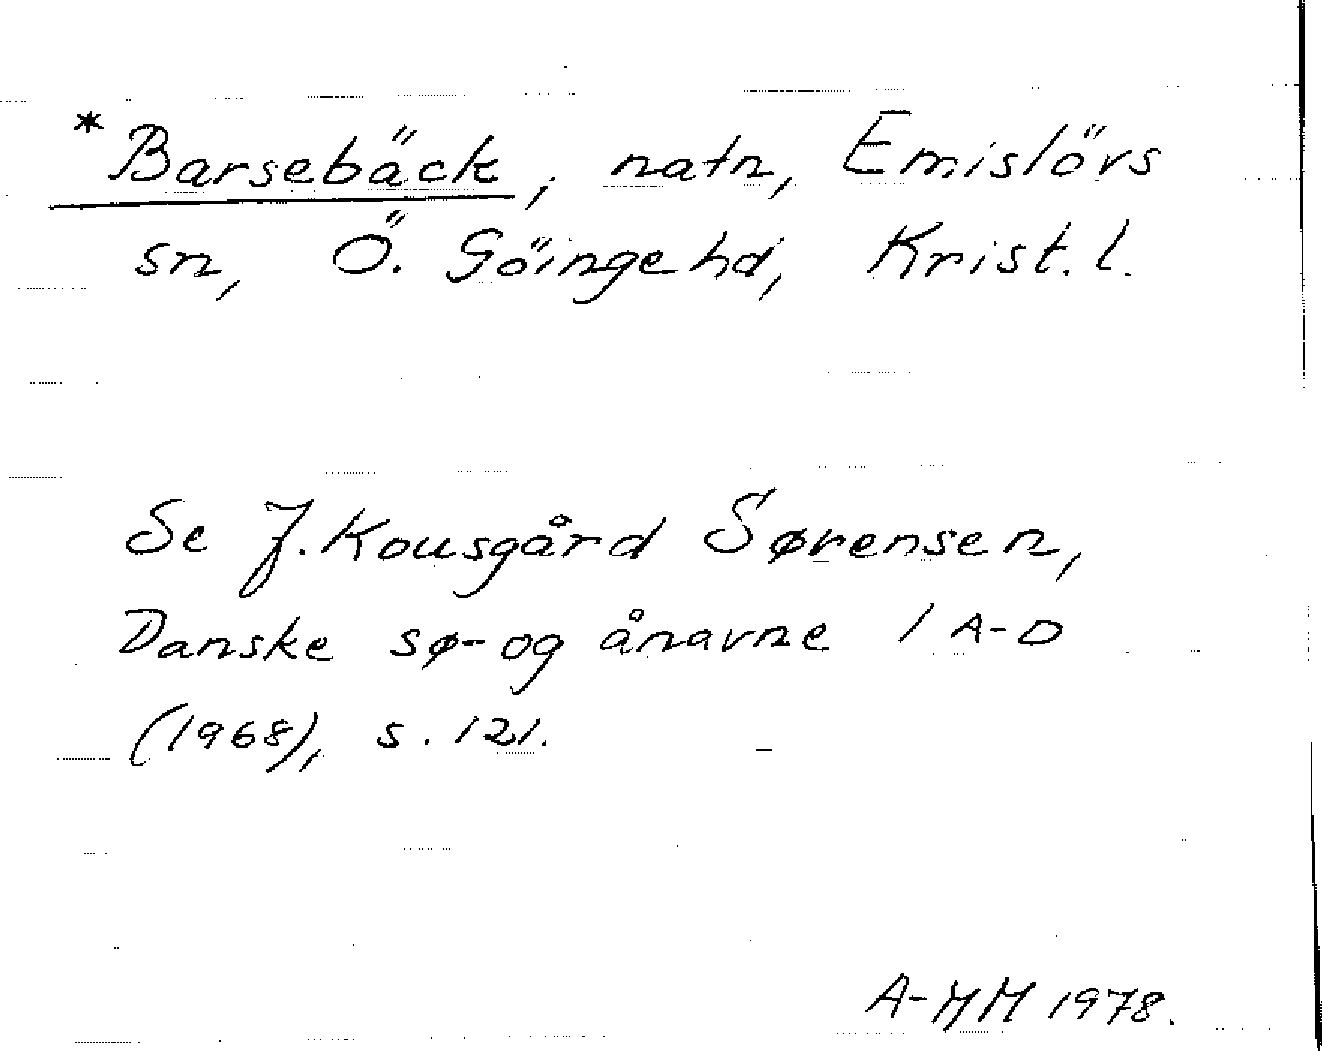 *Barsebäck, natn, Emislövs
sn, Ö. Göinge hd, Krist. l.
Se J. Kousgård Sørensen,
Danske sø- og ånavne 1 A-D
(1968), s. 121.
A-MM 1978.